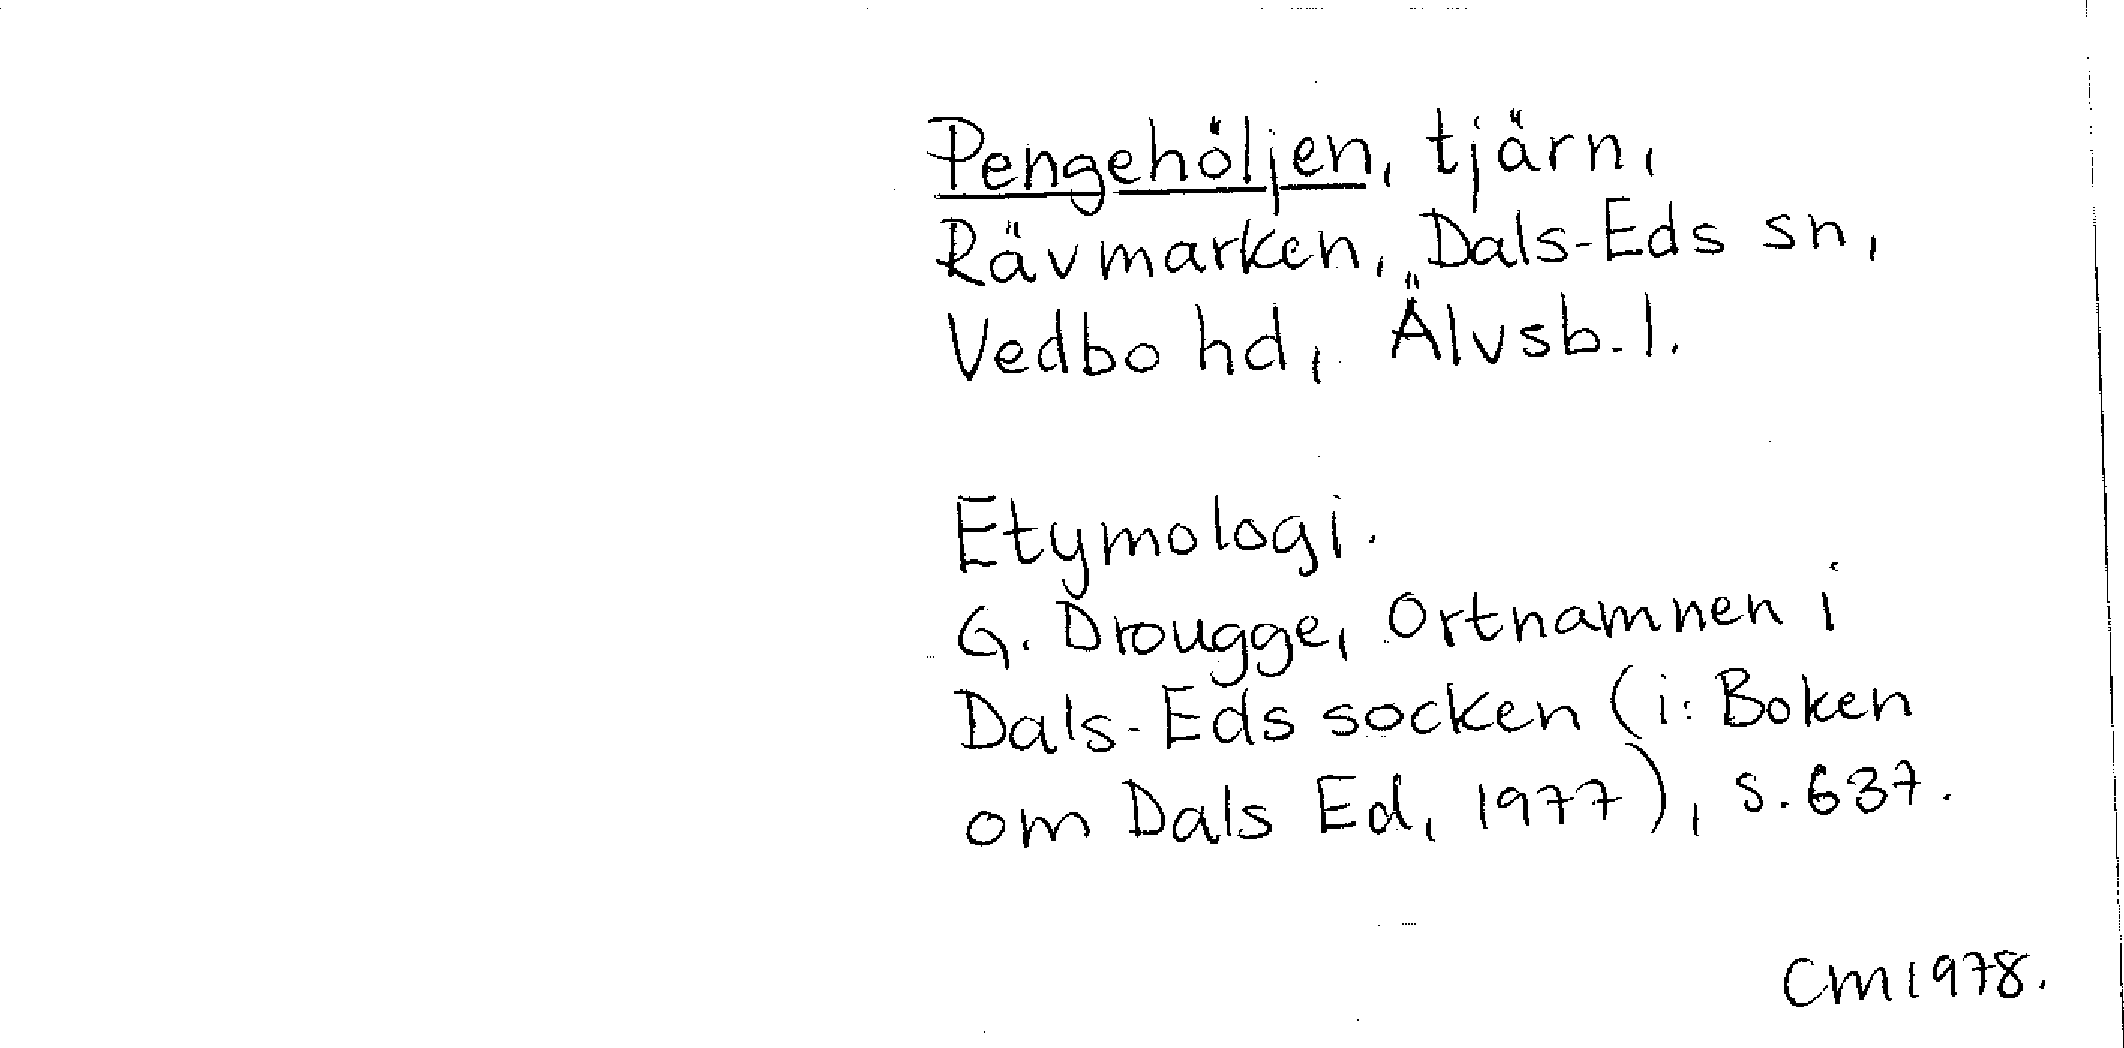 Pengehöljen, tjärn,
Rävmarken, Dals-Eds sn,
Vedbo hd, Älvsb. l.
Etymologi.
G. Drougge, Ortnamnen i
Dals-Eds socken (i: Boken
om Dals Ed, 1977), s. 637.
CM 1978.